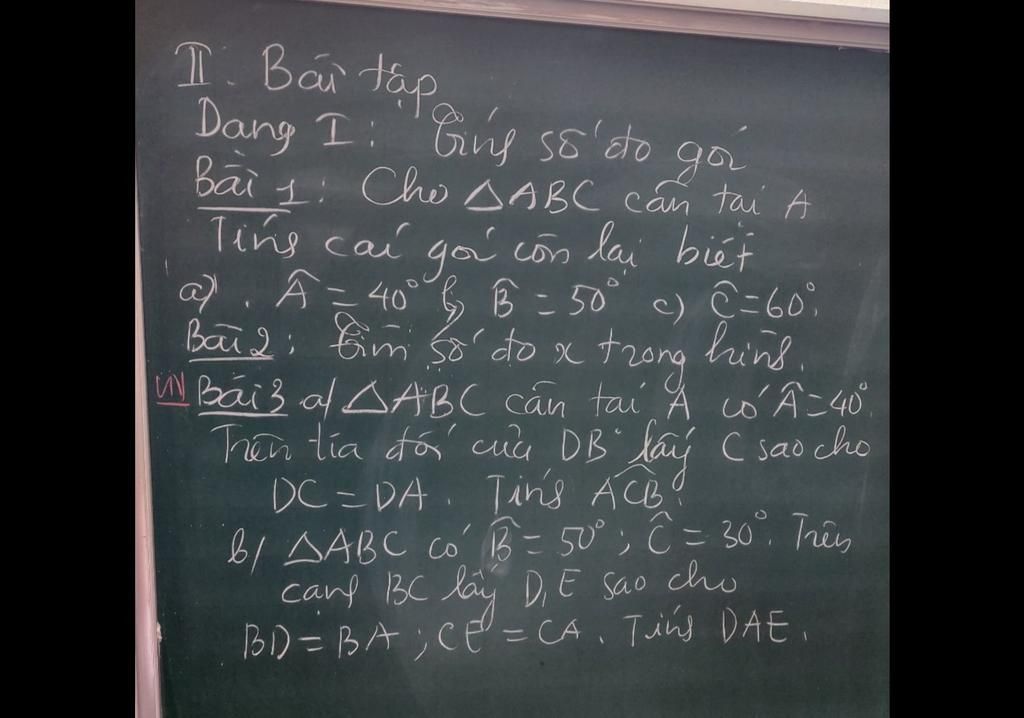 II. Bài tập
Dạng I: Tính số đo góc
Bài 1: Cho △ABC cân tại A
Tính các góc còn lại biết
a) Â = 40° b) B̂ = 50° c) Ĉ = 60°.
Bài 2: Tìm số đo x trong hình.
Bài 3 a/ △ABC cân tại A có Â = 40°.
Trên tia đối của DB lấy C sao cho
DC = DA. Tính AĈB.
b/ △ABC có B̂ = 50°; Ĉ = 30°. Trên
cạnh BC lấy D, E sao cho
BD = BA; CE = CA. Tính DAE.